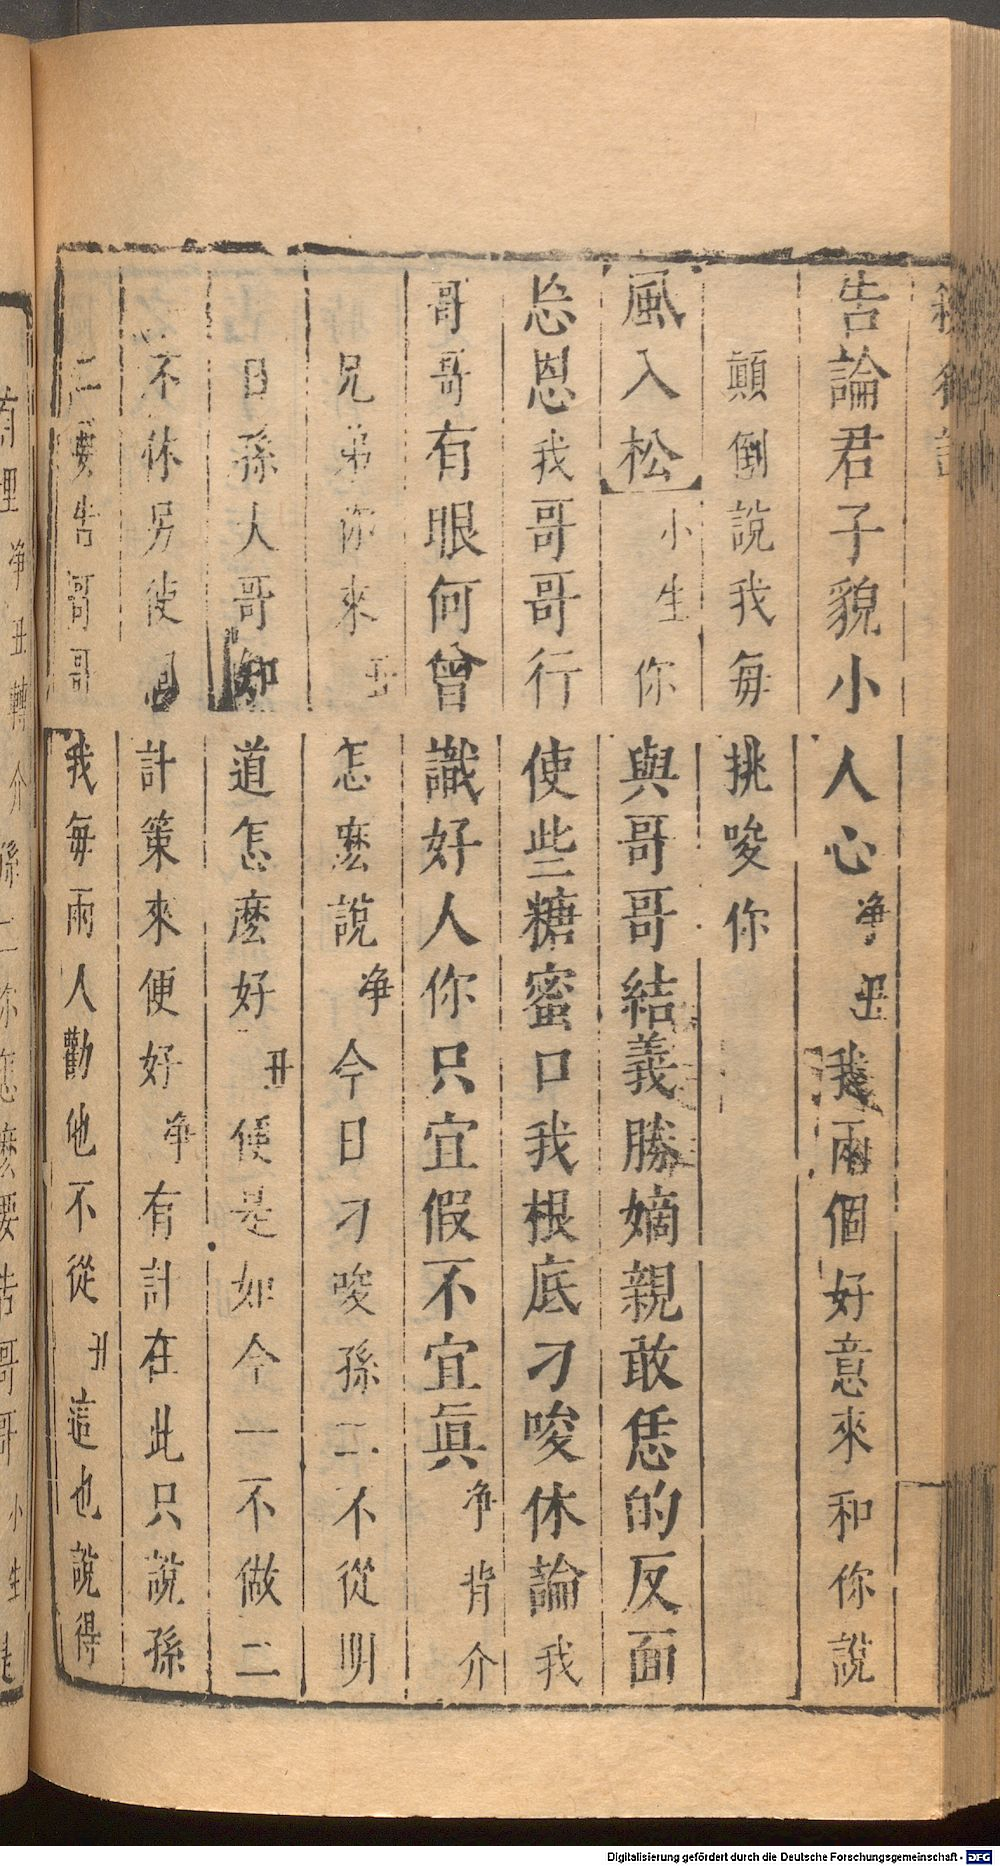 殺狗記
告論君子貌小人心淨丑我兩個好意來和你說
顛倒說我每挑唆你
風入松小生你與哥哥結義勝嫡親敢恁的反面
忘恩我哥哥行使些糖蜜口我根底刁唆休論我
哥哥有眼何曾識好人你只宜假不宜眞淨背介
兄弟你來丑怎麽說淨今日刁唆孫二不從明
日孫大哥知道怎麽好丑便是如今一不做二
不休另使個計策來便好淨有計在此只說孫
二要告哥哥我每兩人勸他不從丑這也說得
有理淨丑轉介孫二你怎麽要告哥哥小生
Digitalisierung gefördert durch die Deutsche Forschungsgemeinschaft - DFG